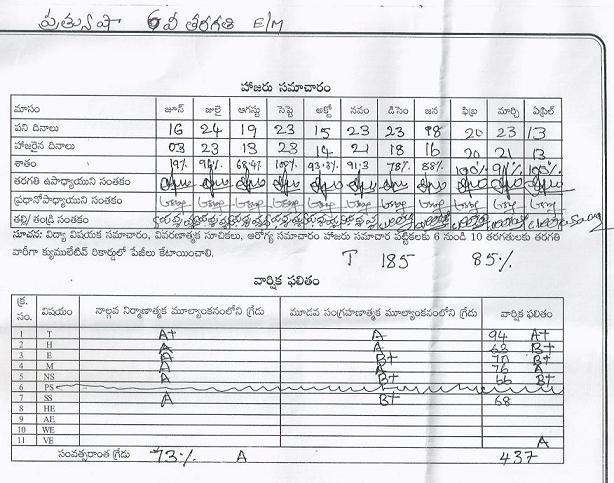 ప్రత్యుషా 6వ తరగతి E/M
హాజరు సమాచారం
మాసం జూన్ జులై ఆగస్టు సెప్టె అక్టో నవం డిసెం జన ఫిబ్ర మార్చి ఏప్రిల్
పని దినాలు 16 24 19 23 15 23 23 18 20 23 13
హాజరైన దినాలు 03 23 13 23 14 21 18 16 20 21 13
శాతం 19% 96% 68.4% 100% 93.3% 91.3 78% 88% 100% 91% 100%
తరగతి ఉపాధ్యాయుని సంతకం
ప్రధానోపాధ్యాయుని సంతకం
తల్లి/ తండ్రి సంతకం
సూచన: విద్యా విషయక సమాచారం, వివరణాత్మక సూచికలు, ఆరోగ్య సమాచారం హాజరు సమాచార పట్టికలకు 6 నుండి 10 తరగతులకు తరగతి
వారీగా క్యుములేటివ్ రికార్డులో పేజీలు కేటాయించాలి. T 185 85%
వార్షిక ఫలితం
క్ర. సం. విషయం నాల్గవ నిర్మాణాత్మక మూల్యాంకనంలోని గ్రేడు మూడవ సంగ్రహణాత్మక మూల్యాంకనంలోని గ్రేడు వార్షిక ఫలితం
1 T A+ A 94 A+
2 H A A 63 B+
3 E A+ B+ 70 B+
4 M A A 76 A
5 NS A B+ 66 B+
6 PS
7 SS A B+ 68
8 HE
9 AE
10 WE
11 VE A
సంవత్సరాంత గ్రేడు 73% A 437